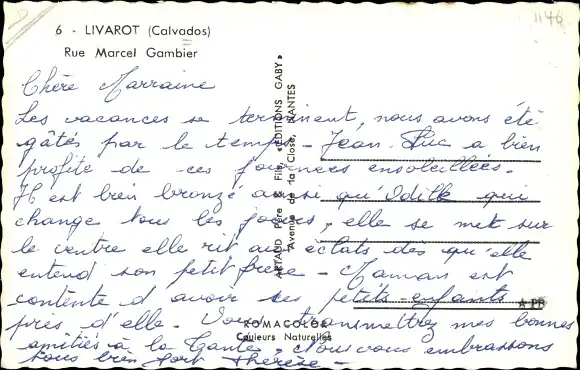 1146
6 - LIVAROT (Calvados)
Rue Marcel Gambier
Chère Marraine
Les vacances se terminent, nous avons été
gâtés par le temps - Jean-Luc a bien
profité de ces journées ensoleillées.
Il est bien bronzé ainsi qu'Odile qui
change tous les jours, elle se met sur
le ventre elle rit aux éclats dès qu'elle
entend son petit frère - Maman est
contente d'avoir ses petits-enfants
près d'elle. Vous transmettrez mes bonnes
amitiés à la Tante. Nous vous embrassons
tous bien fort Thérèse -
ARTAUD Père & Fils, «EDITIONS GABY»
Avenue de la Close, NANTES
ROMACOLOR
Couleurs Naturelles